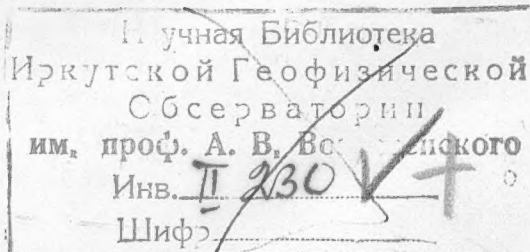 Научная Библиотека
Иркутской Геофизической
Обсерватории
им. проф. А. В. Вознесенского
Инв. II 230
Шифр